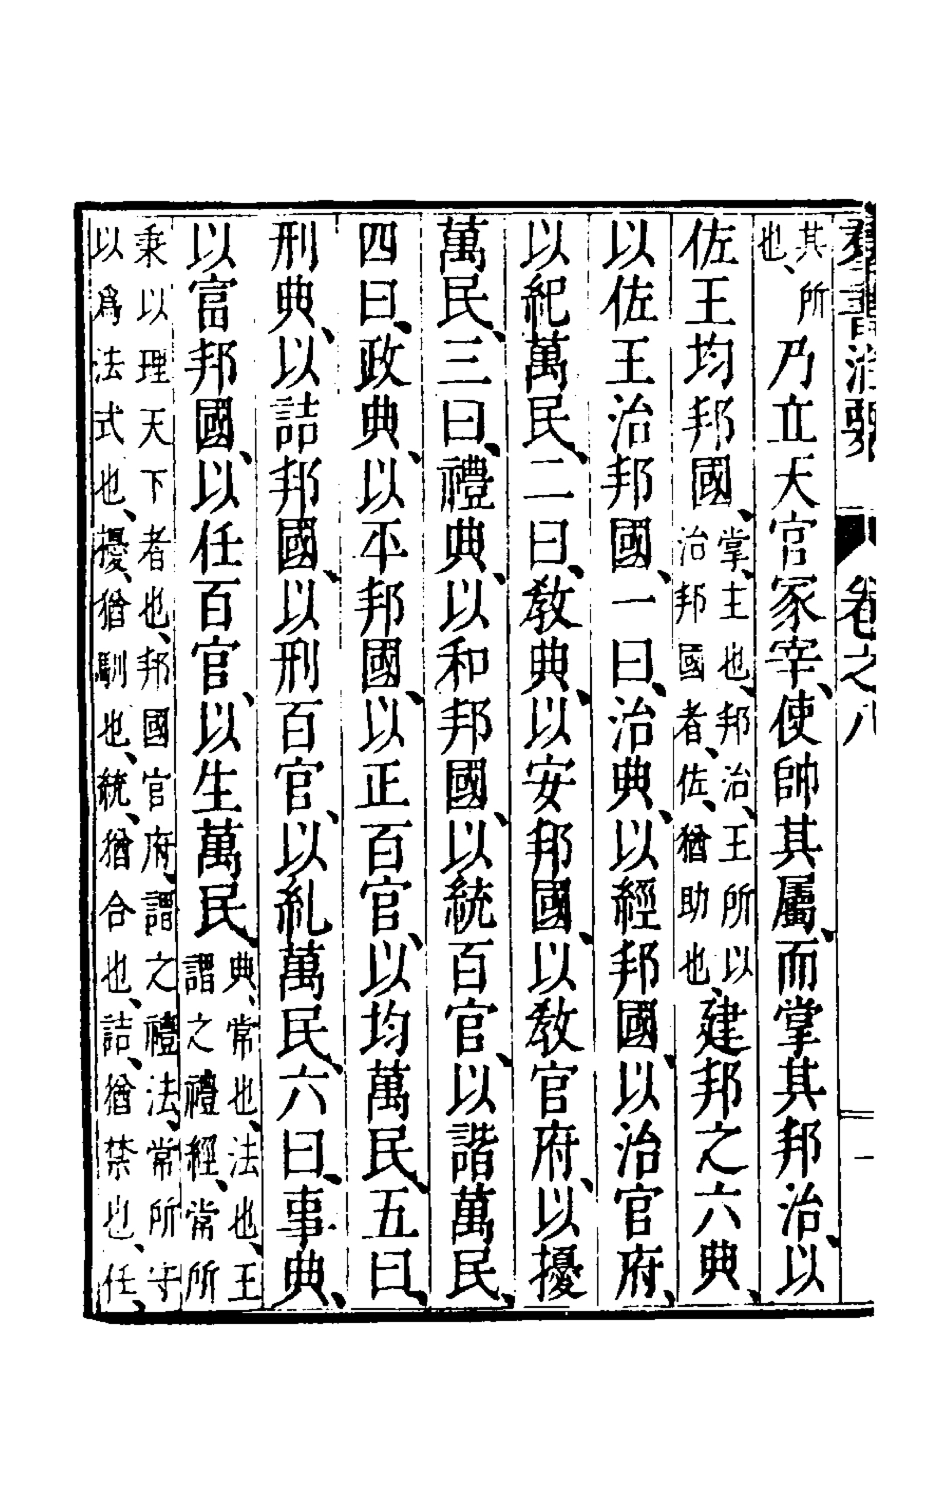 羣書治要 卷之八 一
其所也、乃立天官冢宰、使帥其屬、而掌其邦治、以
佐王均邦國、掌、主也、邦治、王所以治邦國者、佐、猶助也、建邦之六典、
以佐王治邦國、一曰、治典、以經邦國、以治官府、
以紀萬民、二曰、教典、以安邦國、以教官府、以擾
萬民、三曰、禮典、以和邦國、以統百官、以諧萬民、
四曰、政典、以平邦國、以正百官、以均萬民、五曰、
刑典、以詰邦國、以刑百官、以糺萬民、六曰、事典、
以富邦國、以任百官、以生萬民、典、常也、法也、王謂之禮經、常所
秉以理天下者也、邦國官府、謂之禮法、常所守以爲法式也、擾、猶馴也、統、猶合也、詰、猶禁也、任、